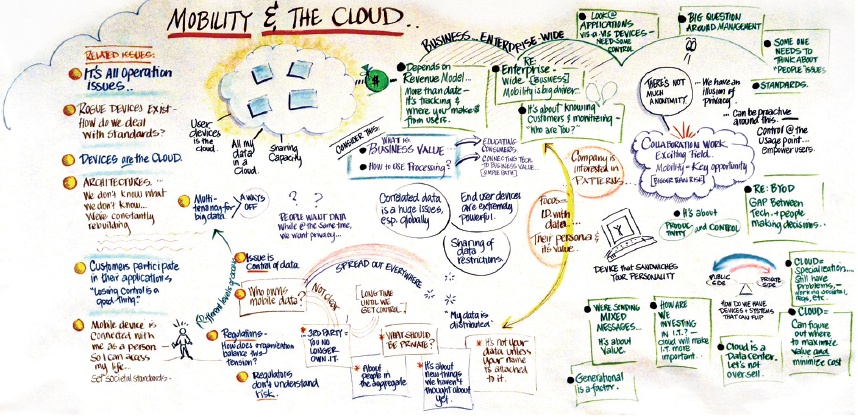 MOBILITY & THE CLOUD..
RELATED ISSUES:
It's All Operation
ISSUES..
ROGUE DEVICES EXIST-
How do we deal
with STANDARDS?
DEVICES are the CLOUD.
ARCHITECTURES...
We don't know what
we don't know...
We're constantly
rebuilding
Customers participate
in their applications
"Losing Control is a
good Thing."
Mobile device is
Connected with
me as a person
So I can access
my life...
Set societal standards-
User
devices is
the cloud.
All my
data in
a Cloud.
Sharing
Capacity
$
Depends on
Revenue Model...
More than date-
It's tracking &
where you make $
from users.
BUSINESS... ENTERPRISE-WIDE
RE:
Enterprise-
Wide [BUSINESS]
Mobility is big driver.
It's about knowing
Customers & monitoring-
"Who are You?"
LOOK @
APPLICATIONS
VIS-A-VIS DEVICES-
NEED SOME
CONTROL
BIG QUESTION
AROUND MANAGEMENT
SOME ONE
NEEDS TO
THINK ABOUT
"PEOPLE ISSUES.
THERE'S NOT
MUCH
ANONYMITY.
... We have an
illusion of
privacy...
STANDARDS.
... Can be proactive
around this...
Control @ the
Usage point...
empower users.
CONSIDER THIS:
WHAT IS
BUSINESS VALUE
HOW to USE Processing?
EDUCATING
CONSUMERS.
CONNECTING TECH
TO BUSINESS VALUE...
Company is
interested in
PATTERNS...
COLLABORATION WORK-
Exciting Field.
Mobility- Key opportunity
[BIGGER THAN RISK]
Multi-
tenancy for
big data.
ALWAYS
OFF
? ?
PEOPLE WANT DATA
While @ the Same time,
we want privacy...
Correlated data
is a huge issues,
esp. globally
End user devices
are extremely
powerful.
Sharing of
data
restrictions.
FOCUS-
I.D. with
data...
Their persona &
its value..
DEVICE that SANDWICHES
YOUR PERSONALITY
It's about
PRODUCTIVITY and CONTROL
RE: BYOD
GAP Between
Tech. & people
making decisions..
Issue is
Control of data.
SPREAD OUT EVERYWHERE
Different levels of control
Who owns
mobile data?
NOT CLEAR
LONG TIME
UNTIL WE
GET CONTROL.
"My data is
distributed"
Regulations-
How does organization
balance this-
Tension?
Regulators
don't understand
risk.
3RD PARTY=
YOU NO
LONGER
OWN IT.
About
people in
the aggregate
WHAT SHOULD
BE PRIVATE?
It's about
new things
we haven't
thought about
yet.
It's not your
data unless
your name
is attached
to it.
PUBLIC
SIDE
PRIVATE
SIDE
HOW DO WE HAVE
DEVICES & SYSTEMS
THAT CAN FLIP
CLOUD=
Specialization...
Still have
problems,-
We're SENDING
MIXED
MESSAGES...
It's about
Value.
HOW ARE
WE
INVESTING
IN I.T.?-
cloud will make
I.T. more
important.
Generational
is a factor.
Cloud is a
Data center.
Let's not
over-sell.
CLOUD=
Can figure
out where
to maximize
value and
minimize cost